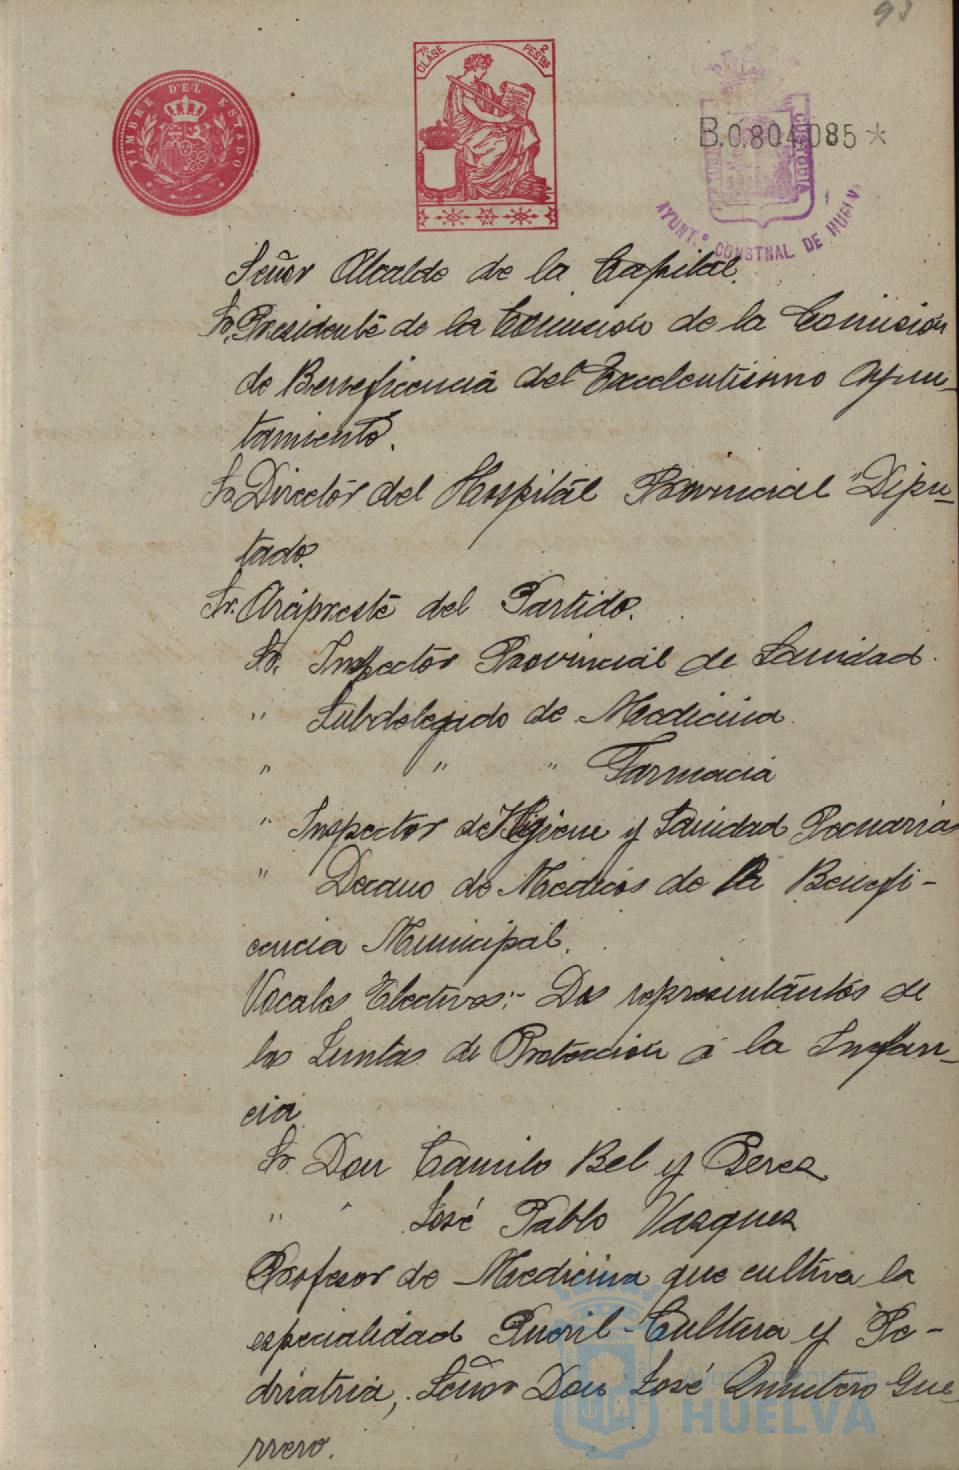 93
TIMBRE DEL ESTADO
7ª CLASE
2 PESTAS
B.0.804.085*
CUSTODIA
AYUNT.º CONSTNAL DE HUELV
Señor Alcalde de la Capital.
Sr. Presidente de la Comisión de la Comisión
de Beneficencia del Excelentisimo Ayun-
tamiento.
Sr. Director del Hospital Provincial "Dipu-
tado.
Sr. Arcipreste del Partido.
Sr. Inspector Provincial de Sanidad.
" Subdelegado de Medicina
" " " Farmacia
" Inspector de Higiene y Sanidad Pecuarias
" Decano de Medicos de la Benefi-
cencia Municipal.
Vocales Electivos:- Dos representantes de
las Juntas de Protección á la Infan-
cia
Sr. Don Camilo Bel y Peres
" " José Pablo Vasques
Profesor de Medicina que cultiva la
especialidad Pueril-Cultura y Pe-
driatria, Señor Don José Quintero Gue-
rrero.
HUELVA